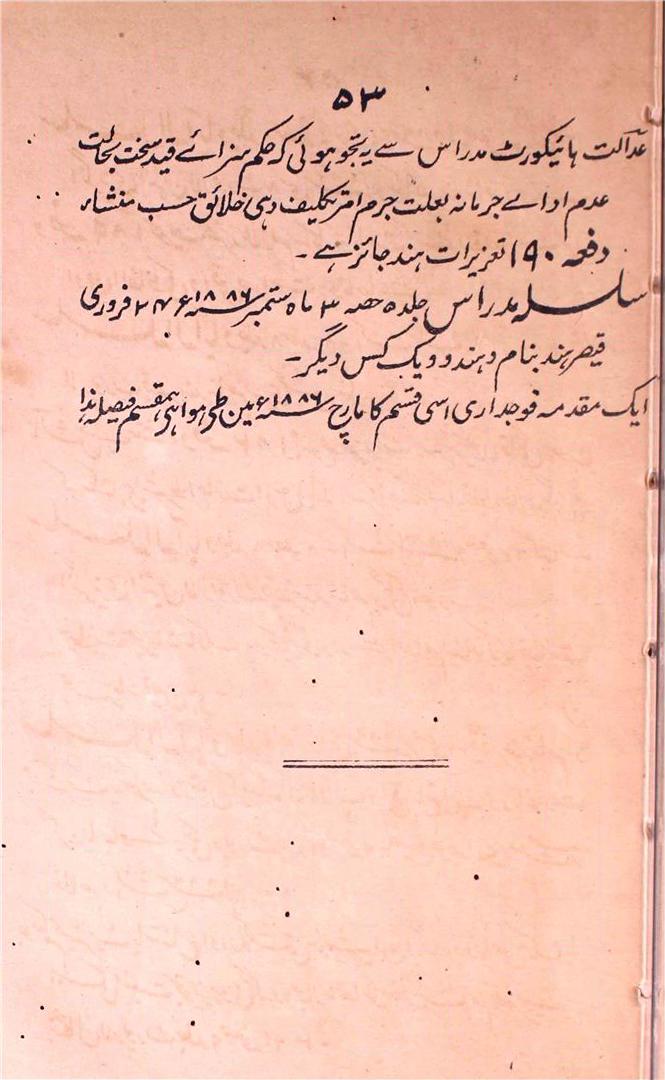 ۵۳
عدالت ہائیکورٹ مدراس سے یہ تجویز ہوئی کہ حکم سزائے قید سخت بحالت
عدم ادائے جرمانہ بعلت جرم امر تکلیف دہی خلائق حسب منشاء
دفعہ ۲۹۰ تعزیرات ہند جائز ہے ۔
سلسلہ مدراس جلد ۵ حصہ ۳ ماہ ستمبر سنہ ۱۸۸۶ء ۲۴ فروری
قیصر ہند بنام دہندو ویک کس دیگر ۔
ایک مقدمہ فوجداری اسی قسم کا مارچ سنہ ۱۸۸۶ء مین طے ہوا ہی ہمقسم فیصلہ ہذا